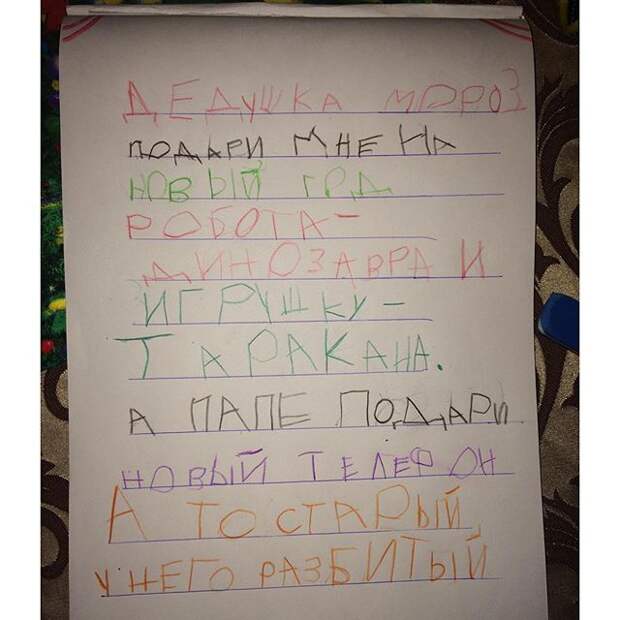 ДЕДУШКА МОРОЗ
ПОДАРИ МНЕ НА
НОВЫЙ ГОД
РОБОТА-
ДИНОЗАВРА И
ИГРУШКУ-
ТАРАКАНА.
А ПАПЕ ПОДАРИ
НОВЫЙ ТЕЛЕФОН
А ТО СТАРЫЙ
У НЕГО РАЗБИТЫЙ